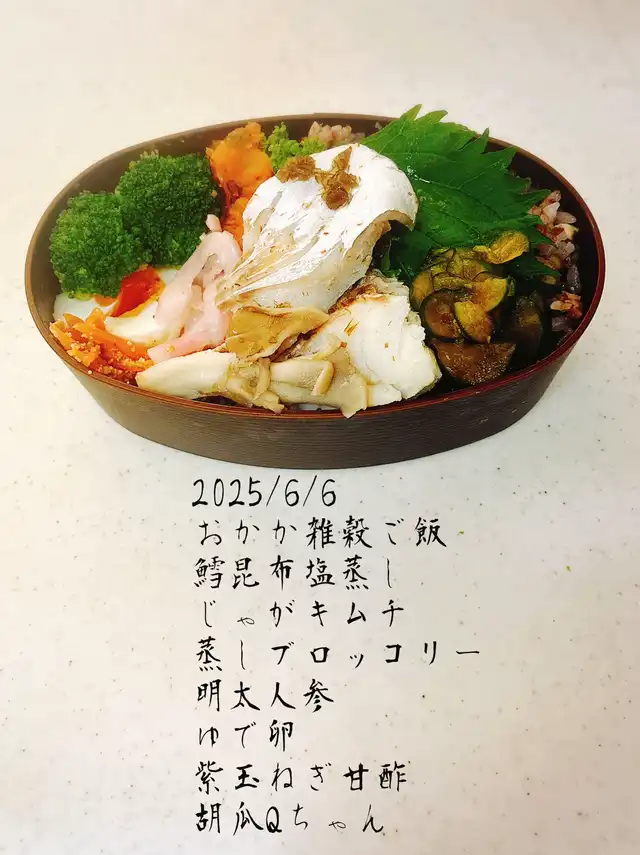 2025/6/6
おかか雑穀ご飯
鱈昆布塩蒸し
じゃがキムチ
蒸しブロッコリー
明太人参
ゆで卵
紫玉ねぎ甘酢
胡瓜Qちゃん